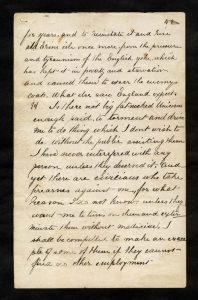 for years, and to reinstate it and rise
old Erins isle once more from the pressure
and tyrannism of the English yoke, which
has kept it in poverty and starvation
and caused them to wear the enemys
coat. What else can England expect.
Is there not big fatnecked Unicorns
enough paid, to torment and drive
me to do thing which I dont wish to
do without the public assisting them
I have never interefered with any
person unless they deserved it, and
yet there are civilians who take
firearms against me, for what
reason I do not know unless they
want me to turn on them and exter
minate them without medicine. I
shall be compelled to make an exam
ple of some of them if they cannot
find no other employment